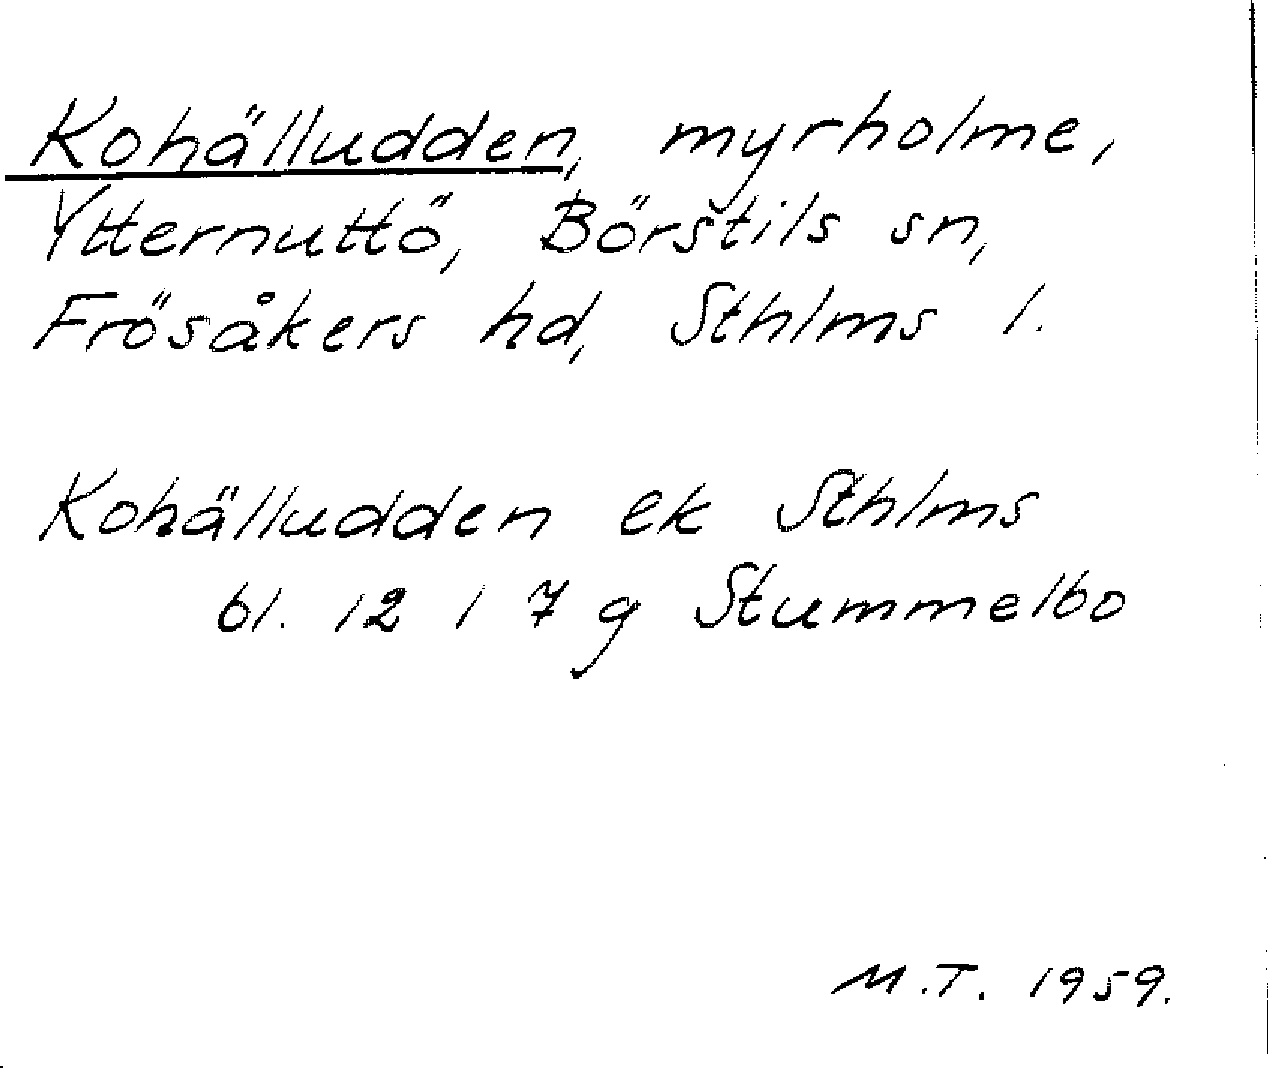 Kohälludden, myrholme,
Ytternuttö, Börstils sn,
Frösåkers hd, Sthlms l.
Kohälludden ek Sthlms
bl. 12 I 7 g Stummelbo
M.T. 1959.